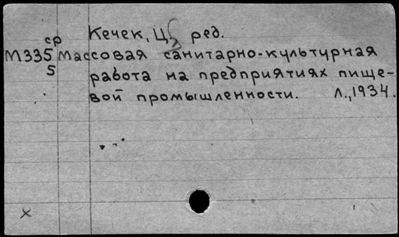 Кечек, Ц, ред.
ср
М335 Массовая санитарно-культурная
5
работа на предприятиях пище-
вой промышленности. Л., 1934.
x